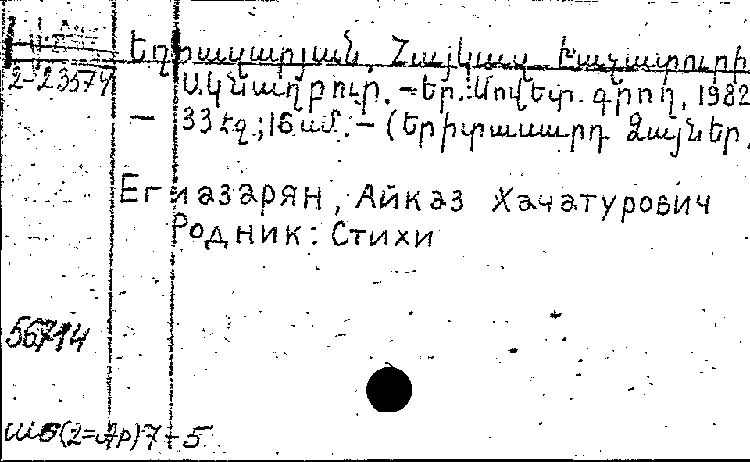 Եղիազարյան, Հայկազ Խաչատուրի
2-23579 Ակնաղբյուր. – Եր.: Սովետ. գրող, 1982
– 33 էջ.; 16 սմ. – (Երիտասարդ ձայներ.
Егиазарян, Айказ Хачатурович
Родник: Стихи
56714
(2=Ар)7+5